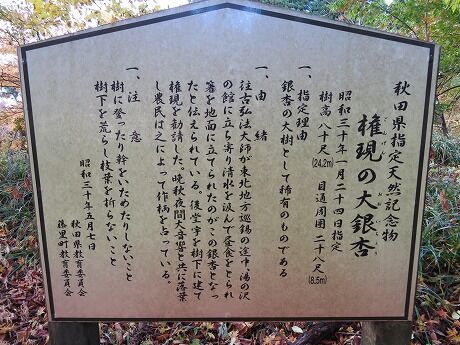 秋田県指定天然記念物
権現の大銀杏
ごんげん おおいちょう
昭和三十年一月二十四日指定
樹高八十尺 目通周囲二十八尺
(24.2m) (8.5m)
一、指定理由
銀杏の大樹として稀有のものである
一、由緒
往古弘法大師が東北地方巡錫の途中湯の沢
の館に立ち寄り清水を汲んで昼食をとられ
箸を地面に立てられたのがこの銀杏となっ
たと伝えられている。後堂宇を樹下に建て
権現を勧請した。晩秋夜間大音響と共に落葉
し農民は之によって作柄を占っている。
一、注意
樹に登ったり幹をいためたりしないこと
樹下を荒らし枝葉を折らないこと
昭和三十年五月七日
秋田県教育委員会
藤里町教育委員会